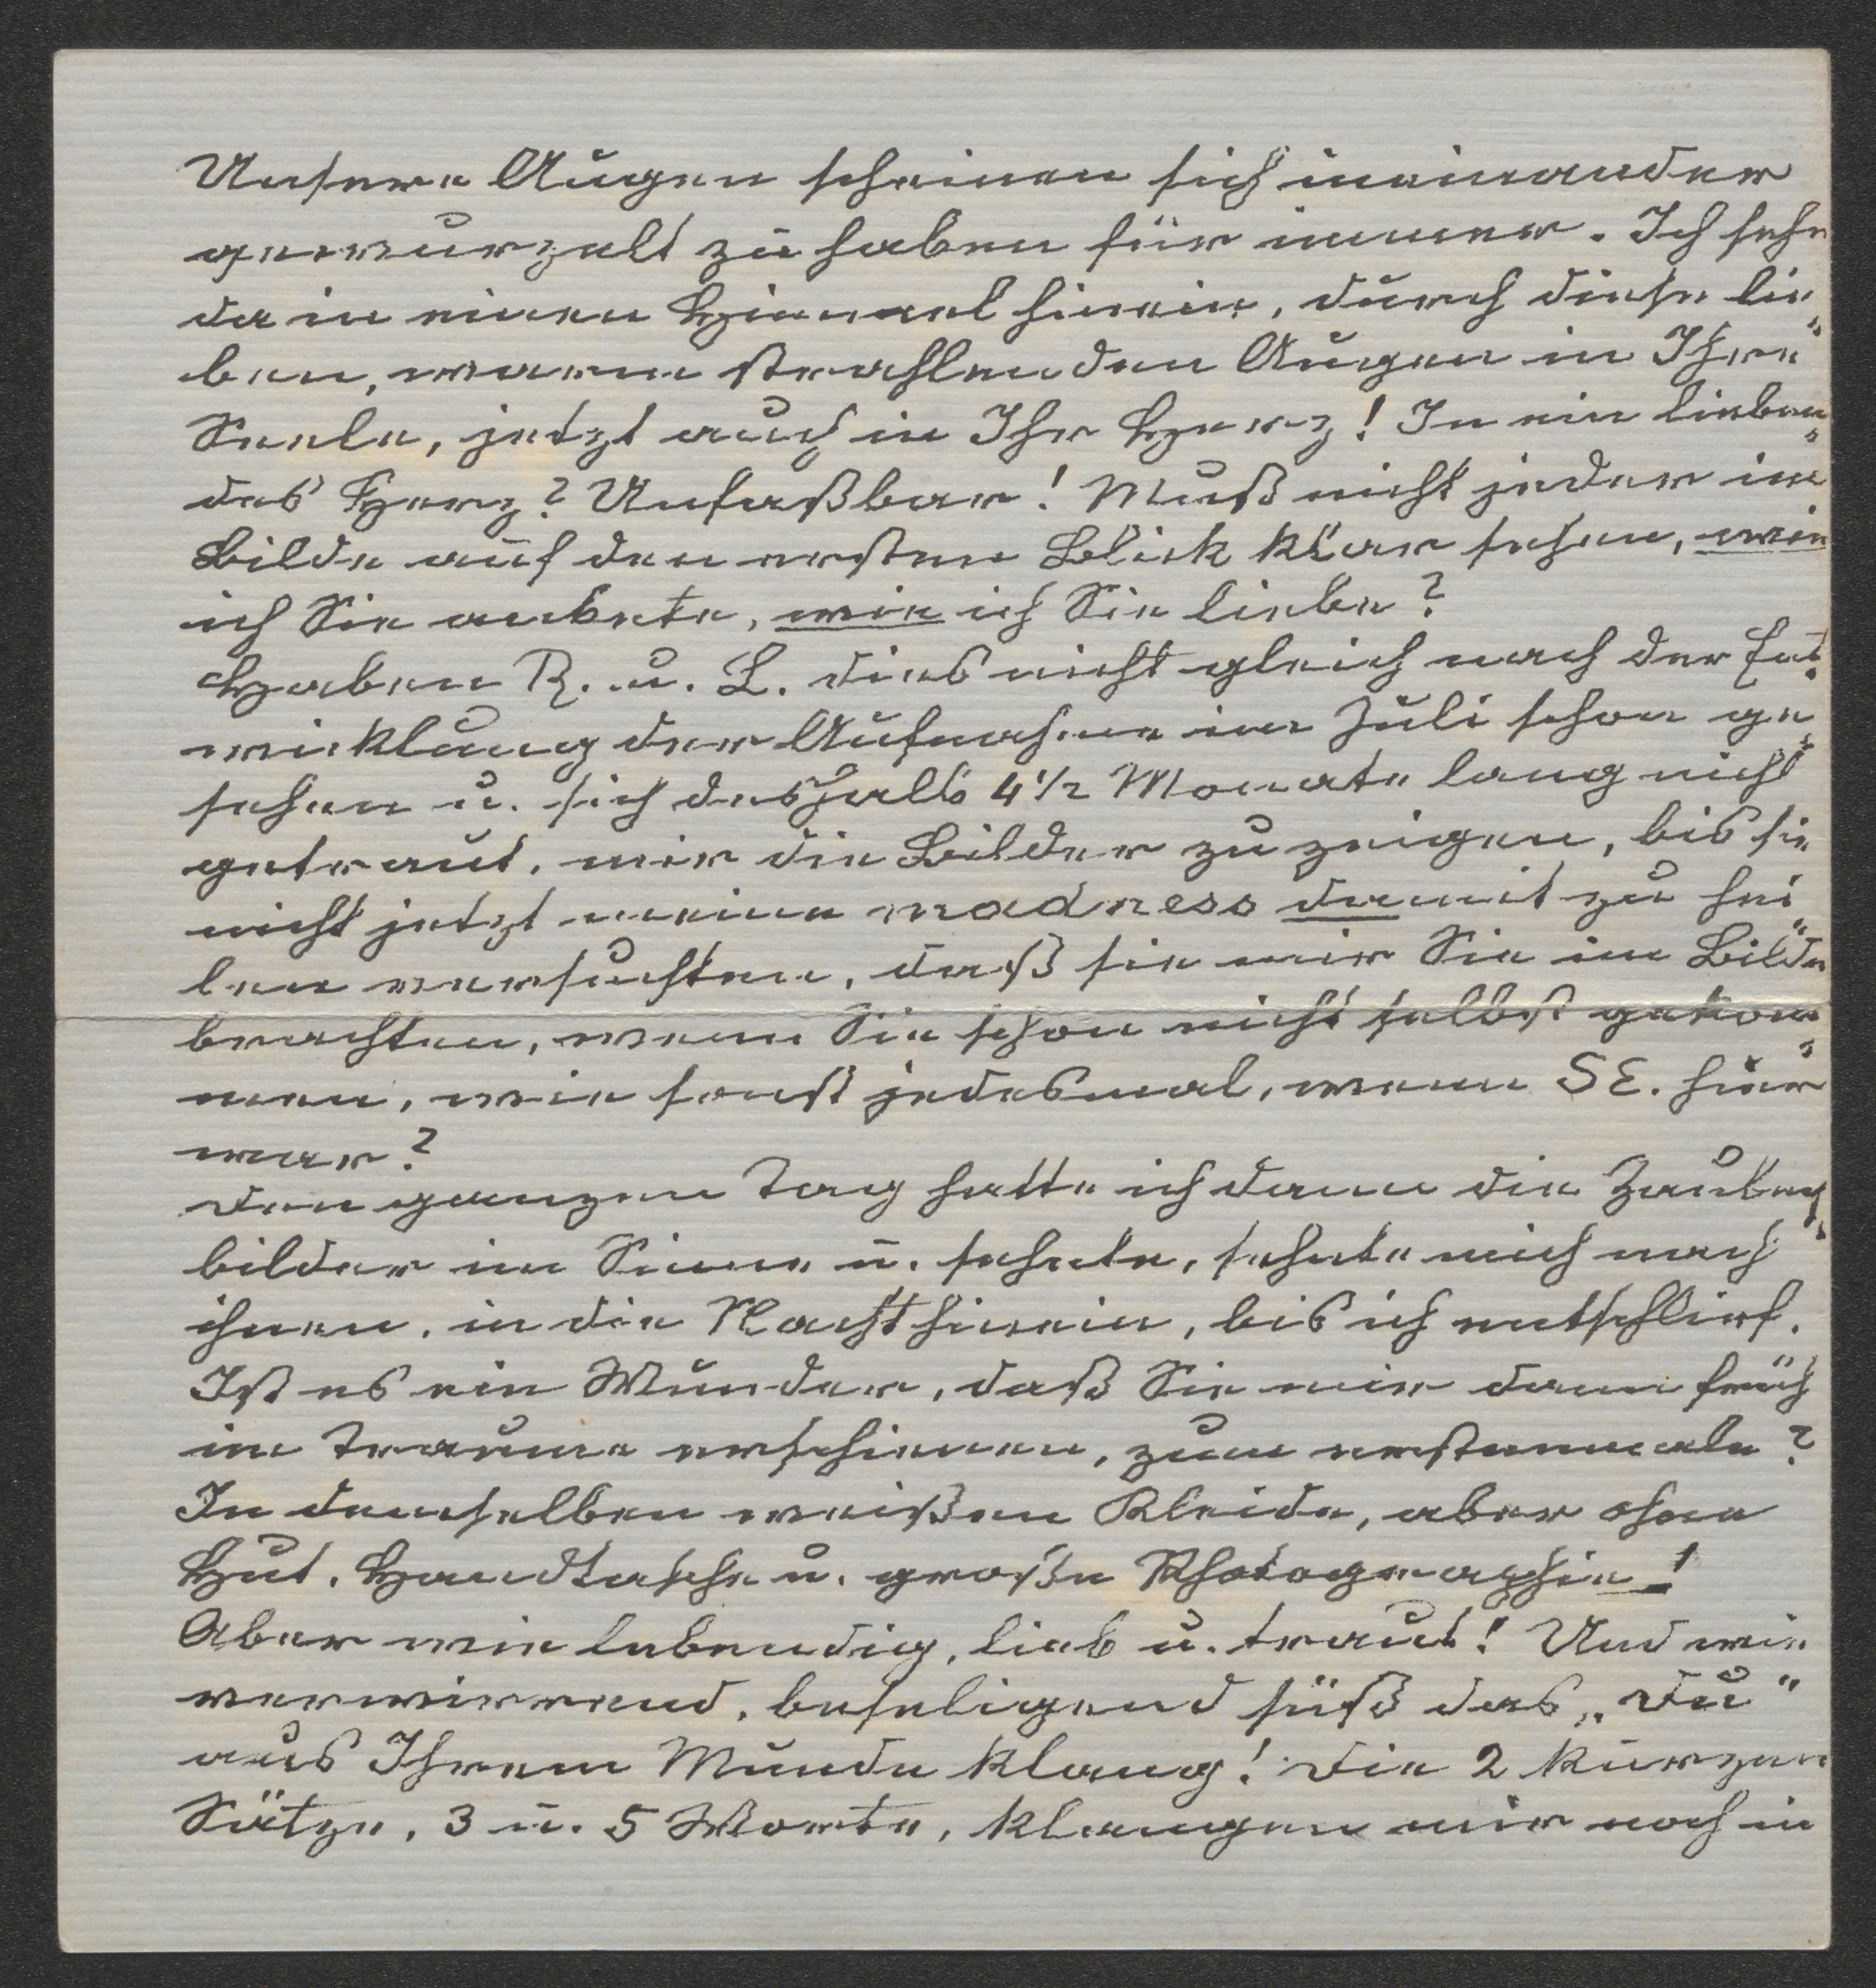 Unsere Augen scheinen sich ineinander
gewurzelt zu haben für immer. Ich sehe
da in einen Himmel hinein, durch diese lie-
ben, warm strahlenden Augen in Ihre
Seele, jetzt auch in Ihr Herz! In ein lieben-
des Herz? Unfaßbar! Muß nicht jeder im
Bilde auf den ersten Blick klar sehen, wie
ich Sie anbete, wie ich Sie liebe?
Haben R. u. L. dies nicht gleich nach der Ent-
wicklung der Aufnahme im Juli schon ge-
sehen u. sich deshalb 4 1/2 Monate lang nicht
getraut, mir die Bilder zu zeigen, bis sie
nicht jetzt meine madness damit zu hei-
len versuchten, daß sie mir Sie im Bilde
brachten, wenn Sie schon nicht selbst gekom-
men, wie sonst jedesmal, wenn SE. hier
war?
Den ganzen Tag hatte ich dann die Zauber-
bilder im Sinne u. sehnte, sehnte mich nach
ihnen, in die Nacht hinein, bis ich entschlief.
Ist es ein Wunder, daß Sie mir dann früh
im Traume erschienen, zum erstenmale?
In demselben weißen Kleide, aber ohne
Hut, Handtasche u. große Photographie!
Aber wie lebendig, lieb u. traut! Und wie
verwirrend, beseligend süß das „Du“
aus Ihrem Munde klang! Die 2 kurzen
Sätze, 3 u. 5 Worte, klangen mir noch in